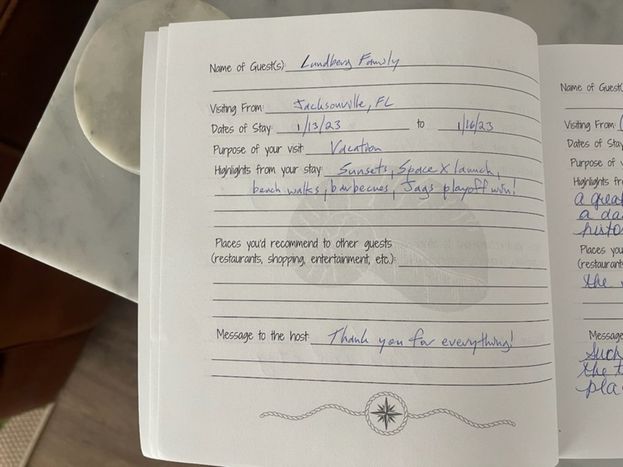 Name of Guest(s): Lundberg Family
Visiting From: Jacksonville, FL
Dates of Stay 1/13/23 to 1/16/23
Purpose of your visit Vacation
Highlights from your stay Sunsets, Space X launch,
beach walks, barbecues, Jags playoff win!
Places you'd recommend to other guests
(restaurants, shopping, entertainment, etc.):
Message to the host: Thank you for everything!
Name of Guest(
Visiting From:
Dates of Stay
Purpose of
Highlights
a great
a da
Places you
(restaurant
the
Message
Such
the t
pla